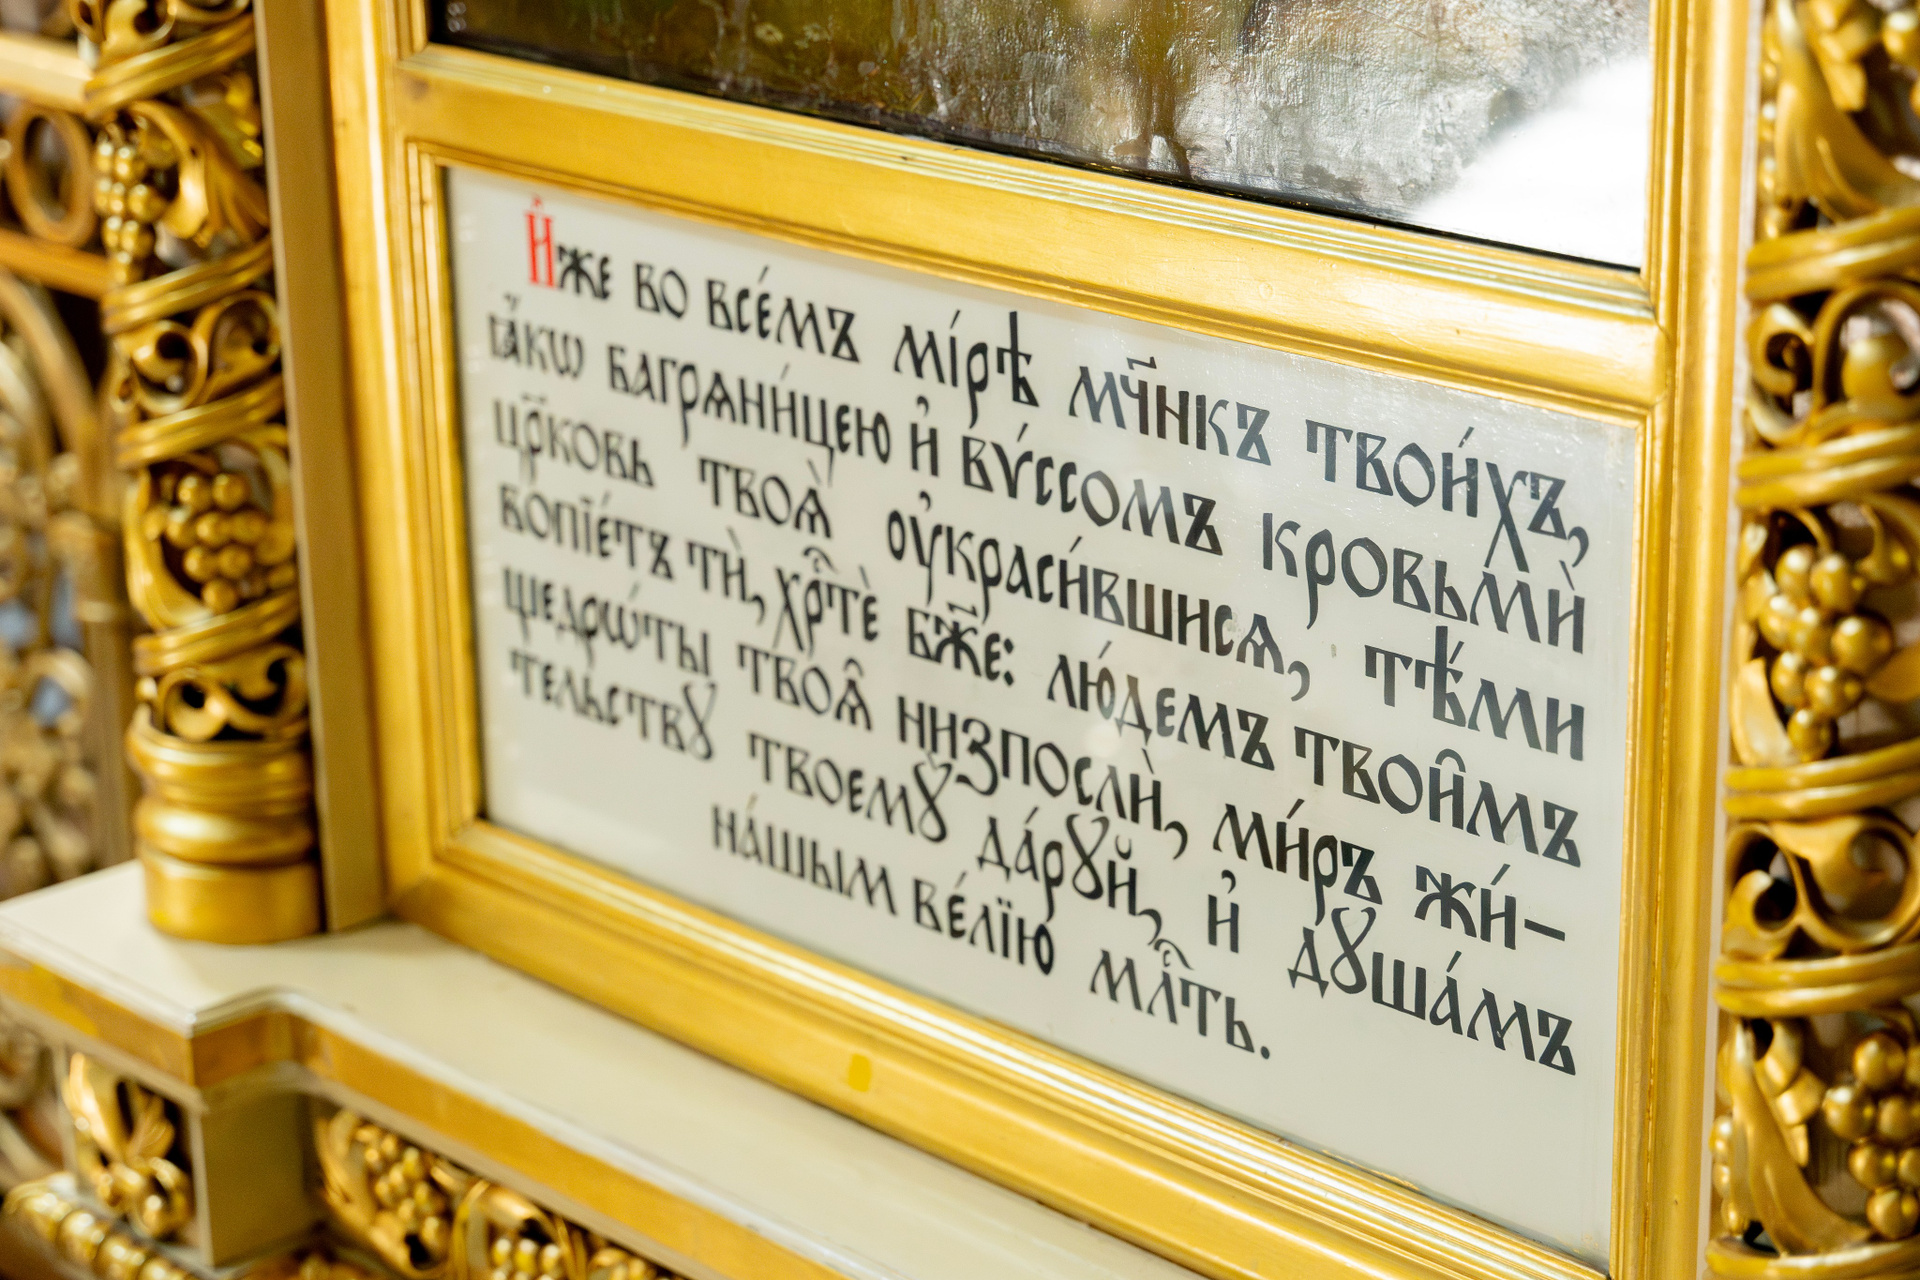 И҆́же во все́мъ мі́рѣ мч҃нкъ твои́хъ,
ꙗ҆́кѡ багрѧни́цею и҆ вѵ́ссомъ кровьмѝ
цр҃ковь твоѧ̀ ѹ҆краси́вшисѧ, тѣ́ми
вопїе́тъ тѝ, хрⷭ҇тѐ бж҃е: лю́демъ твои̑мъ
щедрѡ́ты твоѧ̑ низпослѝ, ми́ръ жи́-
тельствꙋ твоемꙋ̀ да́рꙋй, и҆ дꙋша́мъ
на́шым ве́лїю млⷭ҇ть.